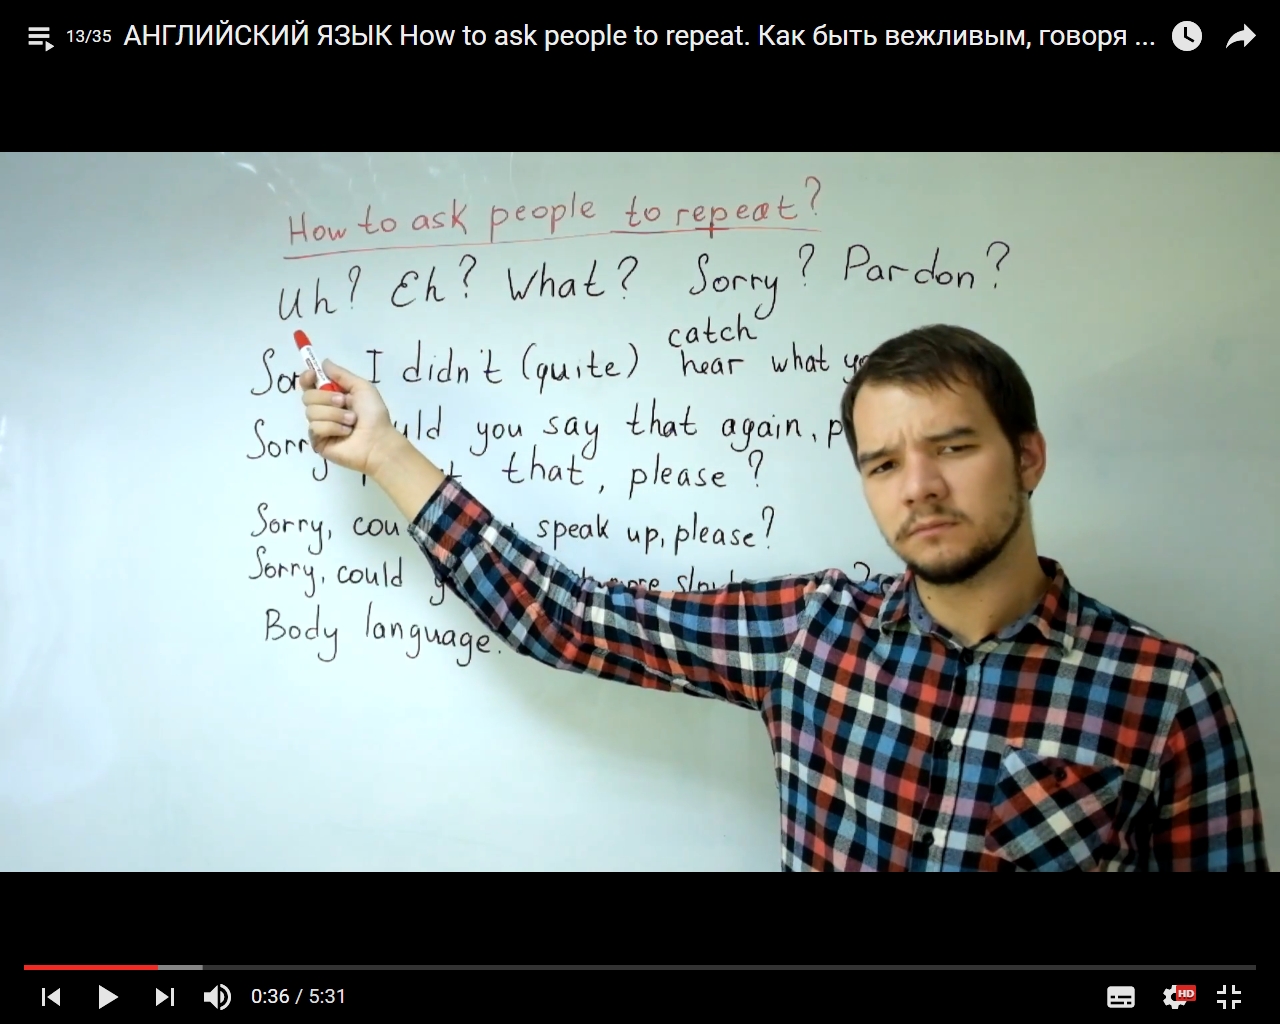 13/35 АНГЛИЙСКИЙ ЯЗЫК How to ask people to repeat. Как быть вежливым, говоря ...
How to ask people to repeat?
Uh? Eh? What? Sorry? Pardon?
catch
I didn't (quite) hear what
you say that again,
that, please?
Sorry, speak up, please?
Sorry, could
Body language.
0:36 / 5:31
HD